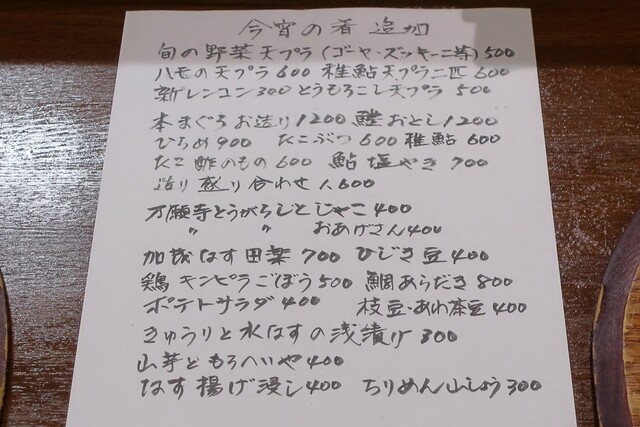 今宵の肴 追加
旬の野菜天プラ(ゴーヤ・ズッキーニ等)500
ハモの天プラ600 稚鮎天プラ二匹600
新レンコン300 とうもろこし天プラ 500
本まぐろお造り1200 鱧おとし1200
ひらめ900 たこぶつ600 稚鮎 600
たこ酢のもの600 鮎塩やき 700
造り盛り合わせ 1人600
万願寺とうがらしとじゃこ400
〃 〃 おあげさん400
加茂なす田楽 700 ひじき豆 400
鶏キンピラごぼう500 鯛あらだき800
ポテトサラダ 400 枝豆・あわ茶豆400
きゅうりと水なすの浅漬け 300
山芋ともろへいや400
なす揚げ浸し400 ちりめん山しょう300